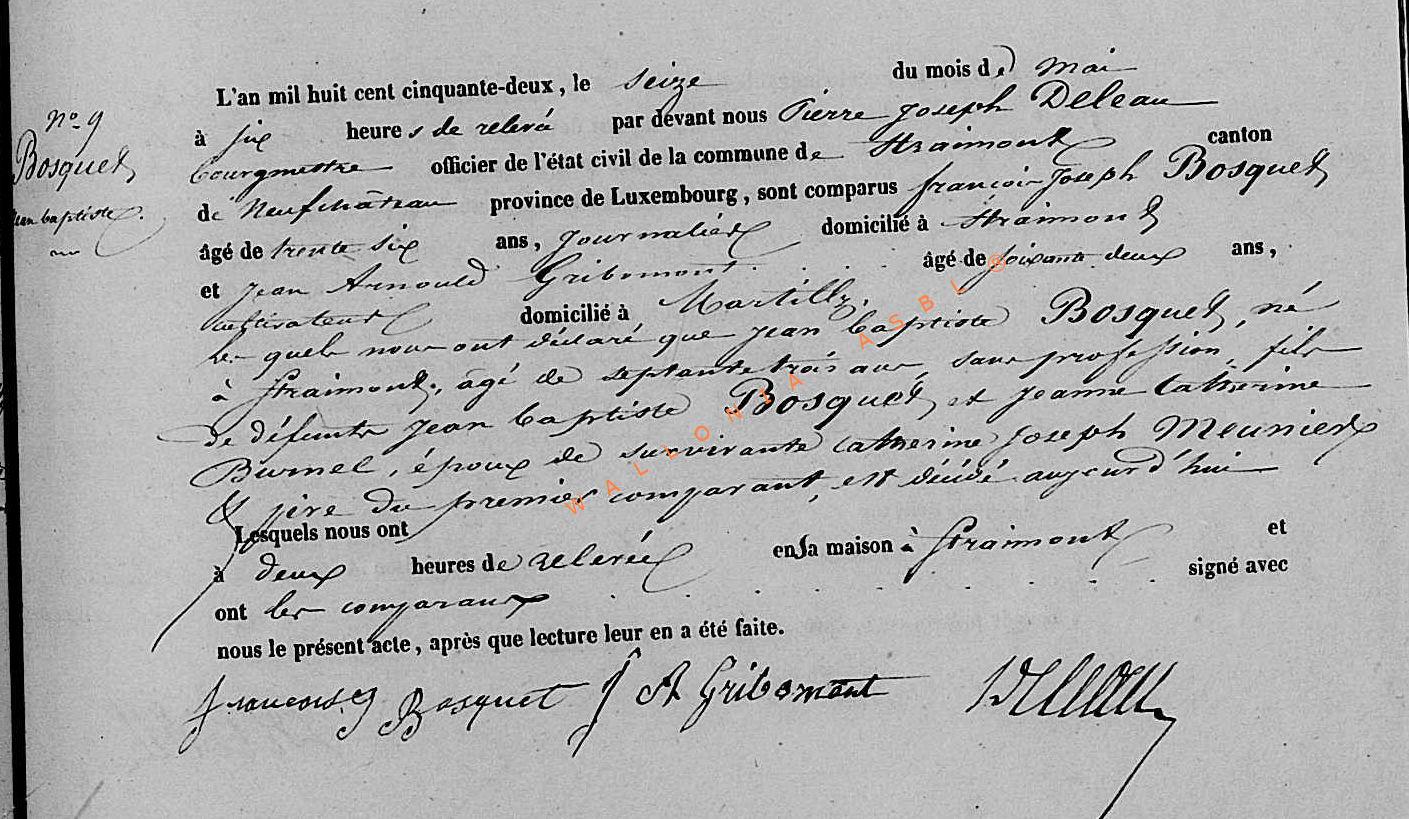 L'an mil huit cent cinquante-deux, le seize du mois de mai
à six heures de relevé par devant nous Pierre Joseph Deleau
bourgmestre officier de l'état civil de la commune de Straimont canton
de Neufchâteau province de Luxembourg, sont comparus françois Joseph Bosquet
âgé de trente six ans, journalier domicilié à Straimont
et Jean Arnould Gribomont âgé de soixante deux ans,
cultivateur domicilié à Martilly.
les quels nous ont déclaré que jean baptiste Bosquet, né
à Straimont, âgé de septante trois ans, sans profession, fils
de défunts jean baptiste Bosquet et jeanne Catherine
Burnel, époux de survivante Catherine Joseph Meunier
& père du premier comparant, est décédé aujourd'hui
Lesquels nous ont
à deux heures de relevée en sa maison à Straimont et
ont les comparans signé avec
nous le présent acte, après que lecture leur en a été faite.
françois j Bosquet J A Gribomont Deleau
n° 9
Bosquet
jean baptiste.
WALLONIA ASBL ®